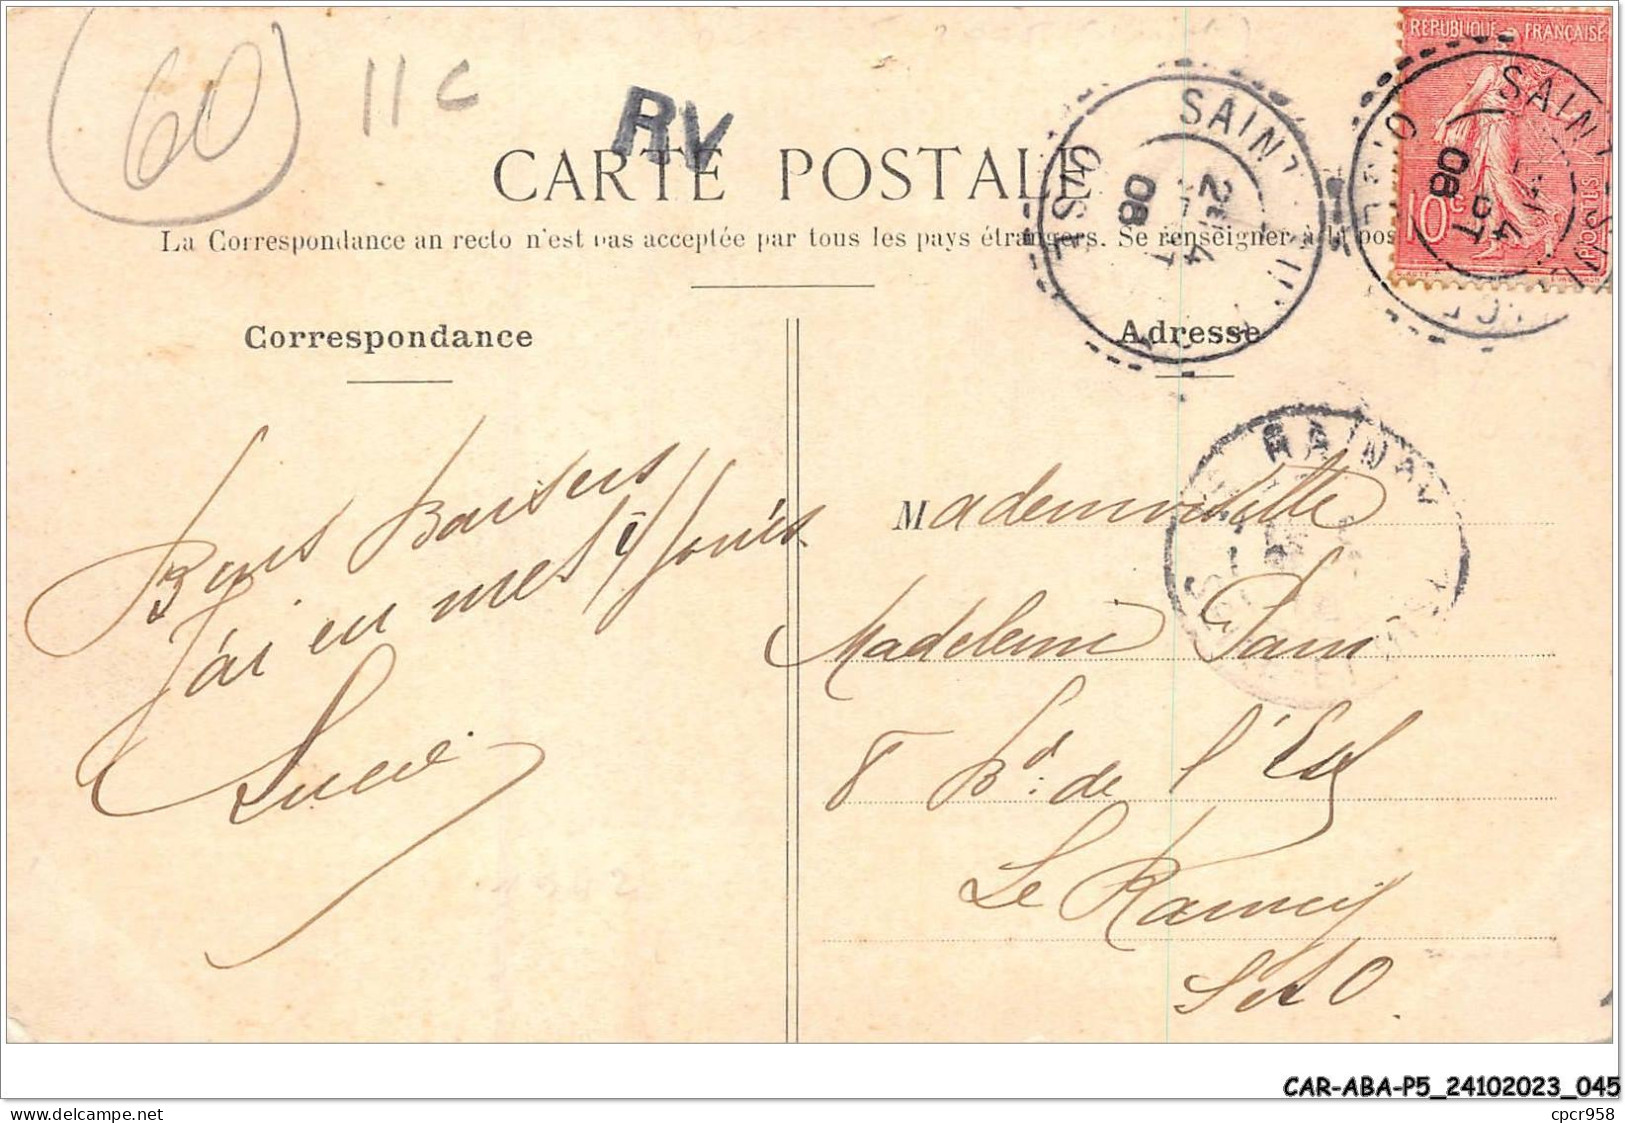 (60) 11 C
RV
REPUBLIQUE FRANÇAISE
10c
POSTES
SAINT
OISE
2E
4
08
SAINT
4
08
CARTE POSTALE
La Correspondance au recto n'est pas acceptée par tous les pays étrangers. Se renseigner à la pos
Correspondance
Adresse
Bons Baisers
J'ai en mes
Lucie
Mademoiselle
Madeleine
8 Bd. de l'Est
Le Raincy
S et O
RAINCY
CAR-ABA-P5_24102023_045
cpcr958